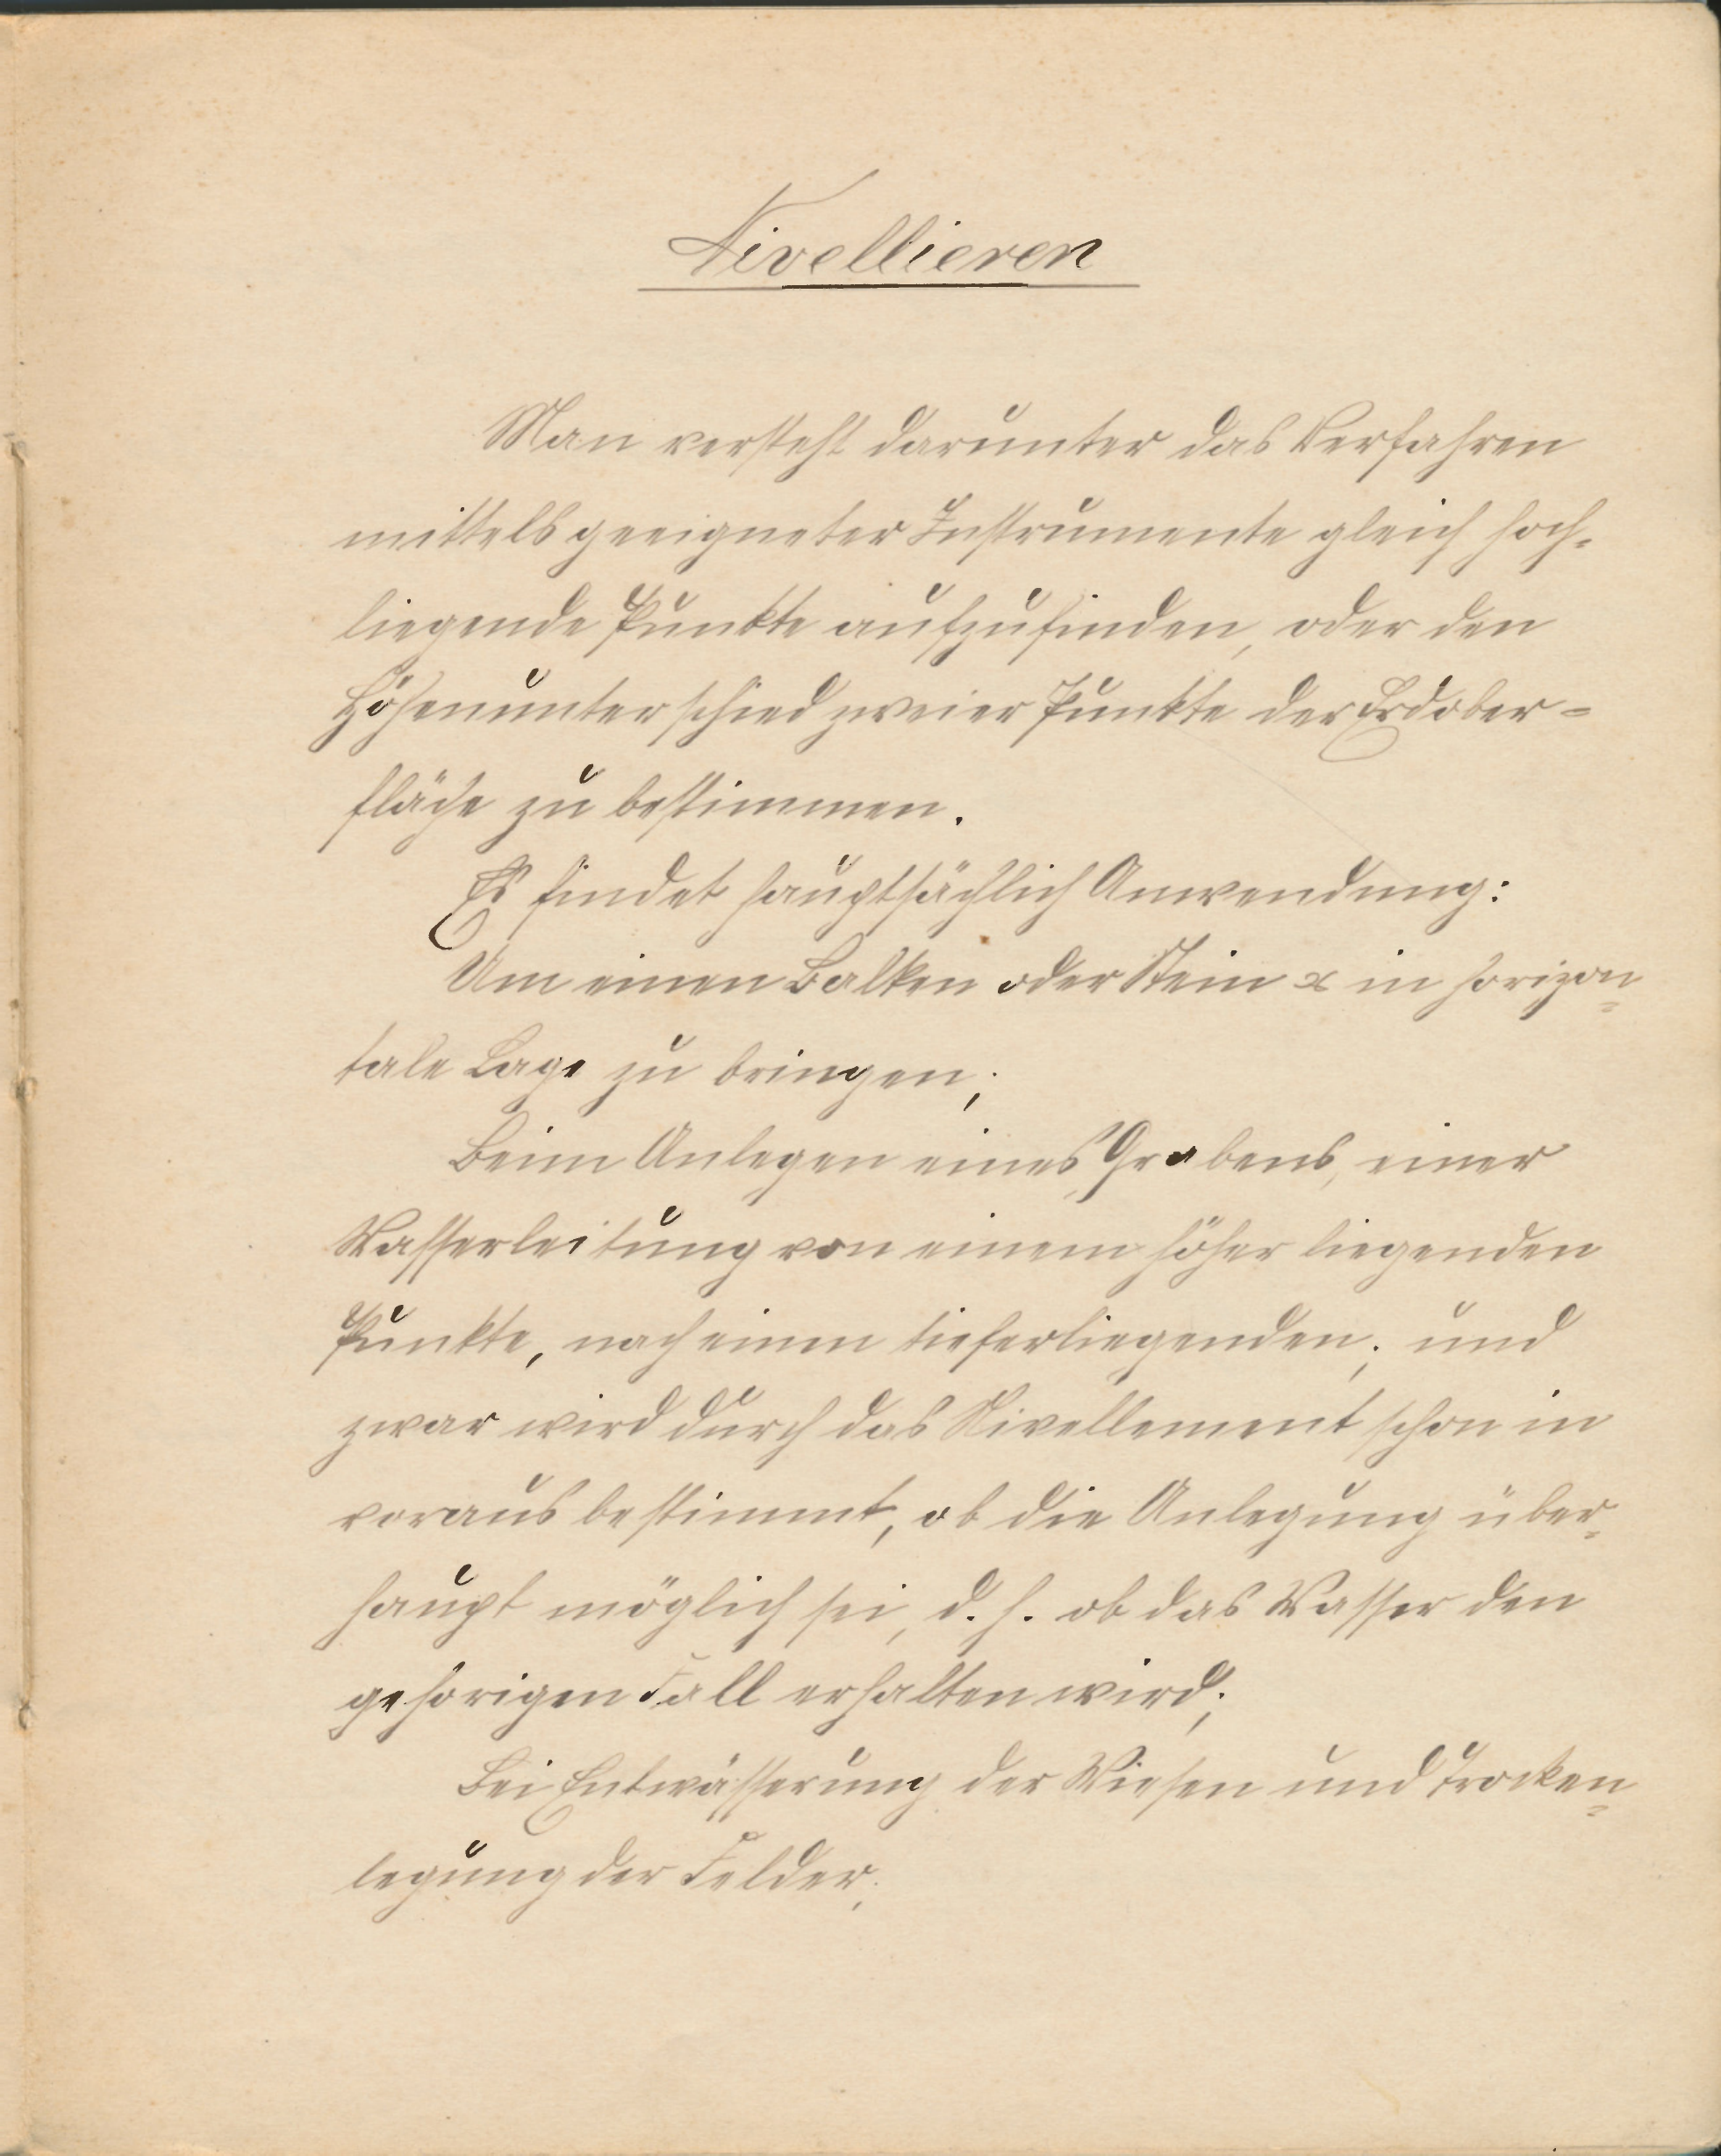 Nivellieren
Man versteht darunter das Verfahren
mittels geeigneter Instrumente gleich hoch-
liegende Punkte aufzufinden, oder den
Höhenunterschied zweier Punkte der Erdober-
fläche zu bestimmen.
Es findet hauptsächlich Anwendung:
Um einen Balken oder Stein x in horizon-
tale Lage zu bringen;
Beim Anlegen eines Grabens, einer
Wasserleitung von einem höher liegenden
Punkte, nach einem tieferliegenden; und
zwar wird durch das Nivellement schon in
voraus bestimmt, ob die Anlegung über-
haupt möglich sei, d. h. ob das Wasser den
gehörigen Fall erhalten wird;
Bei Entwässerung der Wiesen und Trocken-
legung der Felder;